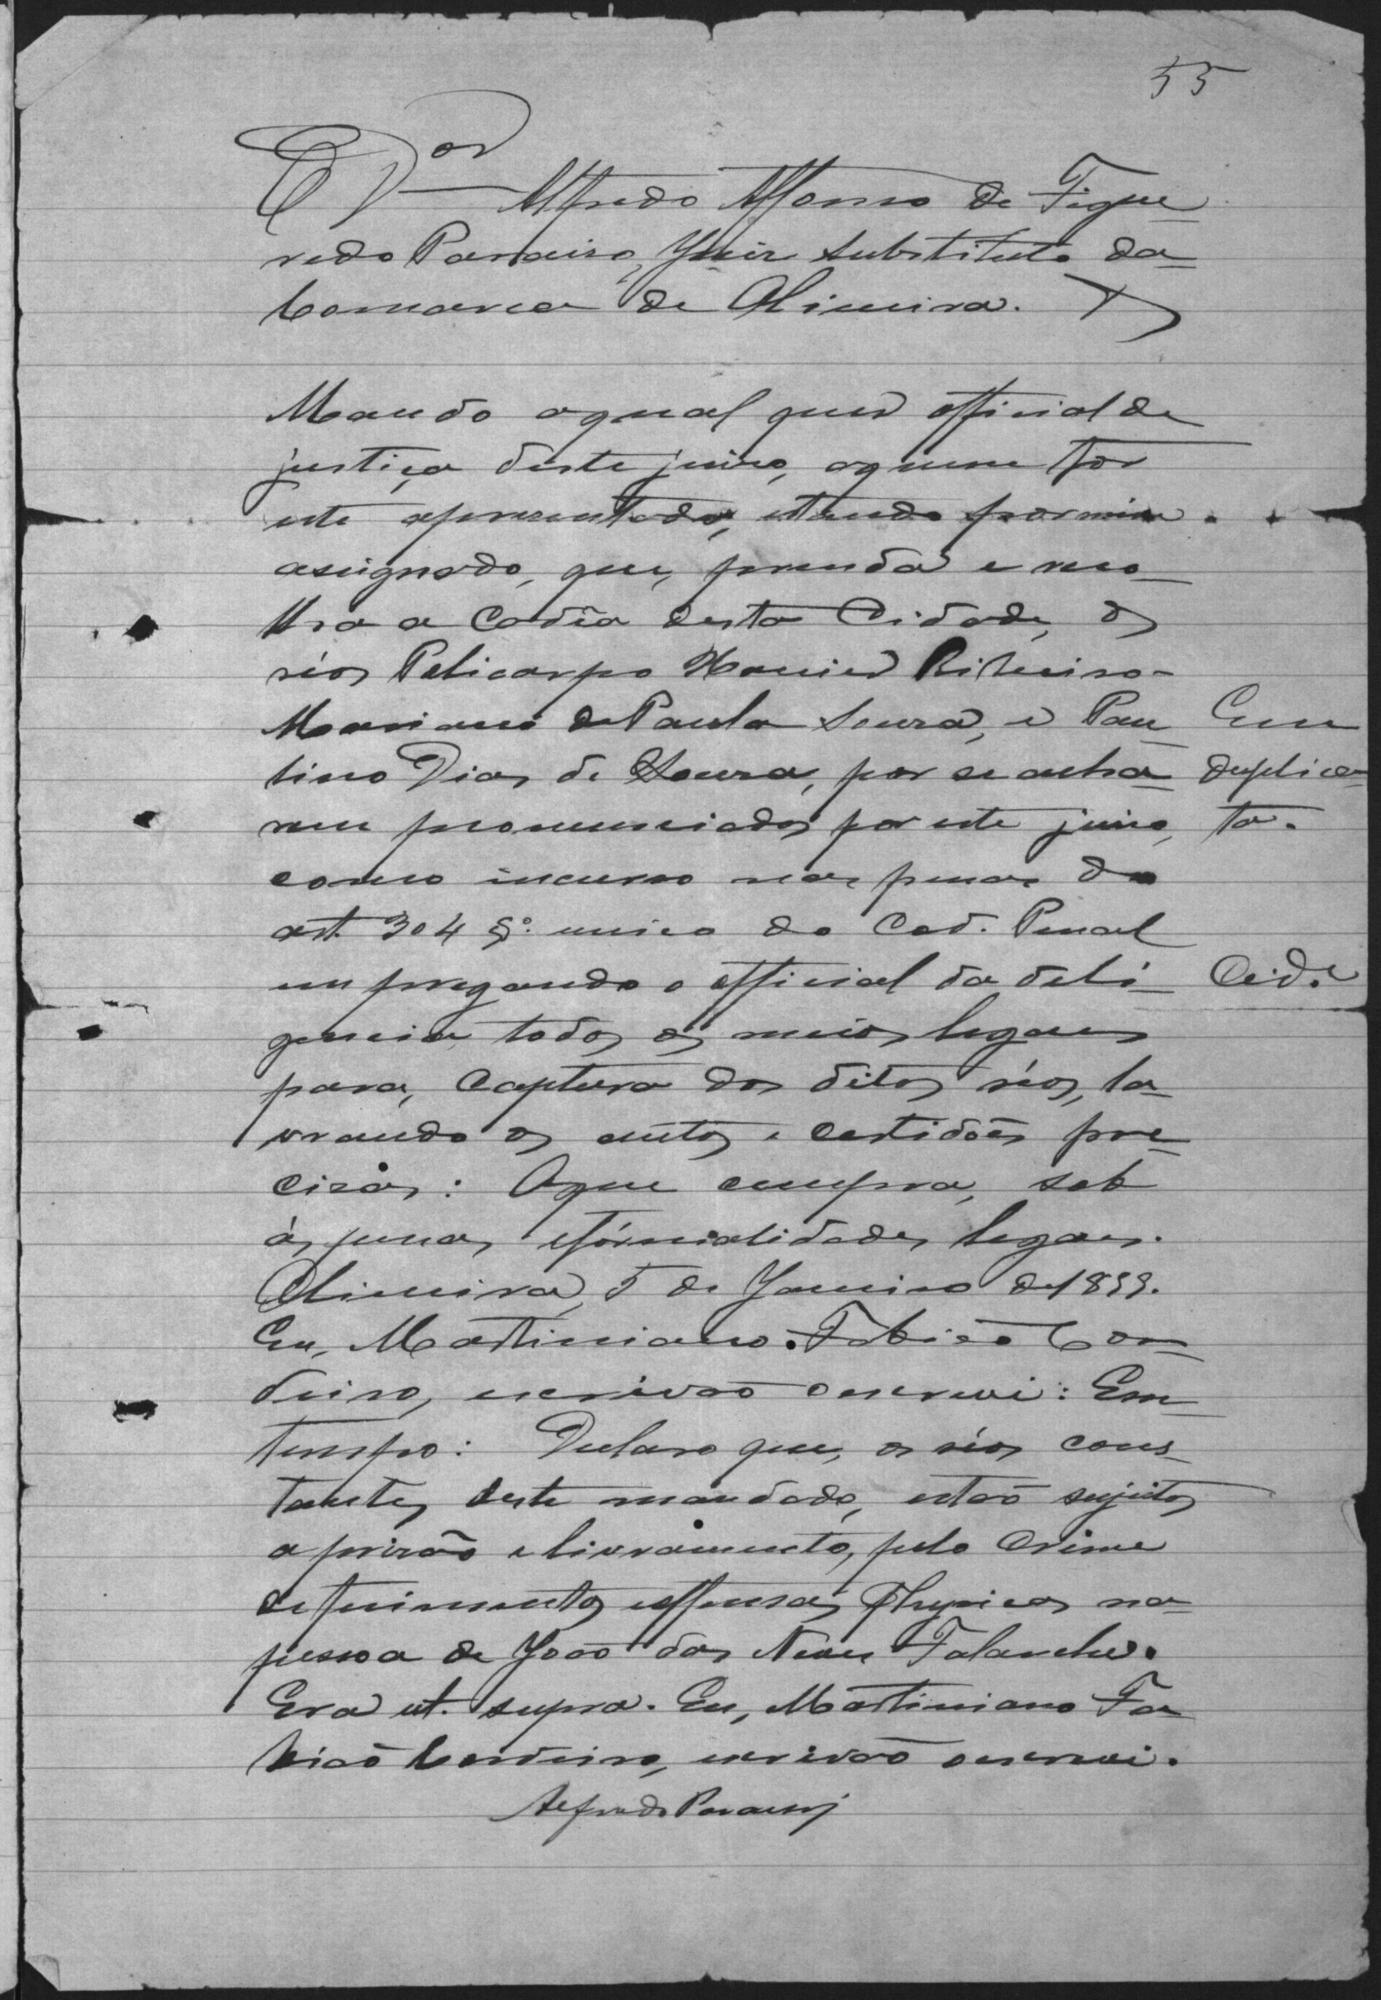 55
O Dor Alfredo Affonso de Figue-
redo Paraiso, Juiz substituto da
Comarca de
Mando a qual quer official de
justiça deste juizo, a quem for
este apresentado, estando por mim
assignado, que, prenda e reco-
lha a Cadêa desta Cidade, os
réos Policarpo Xavier Ribeiro
Mariano de Paula Souza, e Pau
lino Dias de Souza, por se achá-
rem pronunciados por este juizo,
como incurso nas penas do
art. 304 §º unico do Cod. Penal
empregando o official da deli-
gencia todos os meios legaes
para, captura dos ditos réos, la-
vrando os autos e certidões pre-
cisas: O que cumpra, sob
ás penas, e fórmalidades legaes.
5 de Janeiro de 1899.
Eu, Martiniano Fabião Cor-
deiro, escrivão o escrevi: Em
tempo: Declaro que, os réos cons-
tantes deste mandado, estão sujeitos
a prizão e livramento, pelo crime
de ferimentos e offensas physicas na
pessoa de João das Neves
Era ut. supra. Eu, Martiniano Fa-
bião Cordeiro, escrivão o escrevi.
Alfredo Paraiso
Em
duplica-
ta.
Cid.e